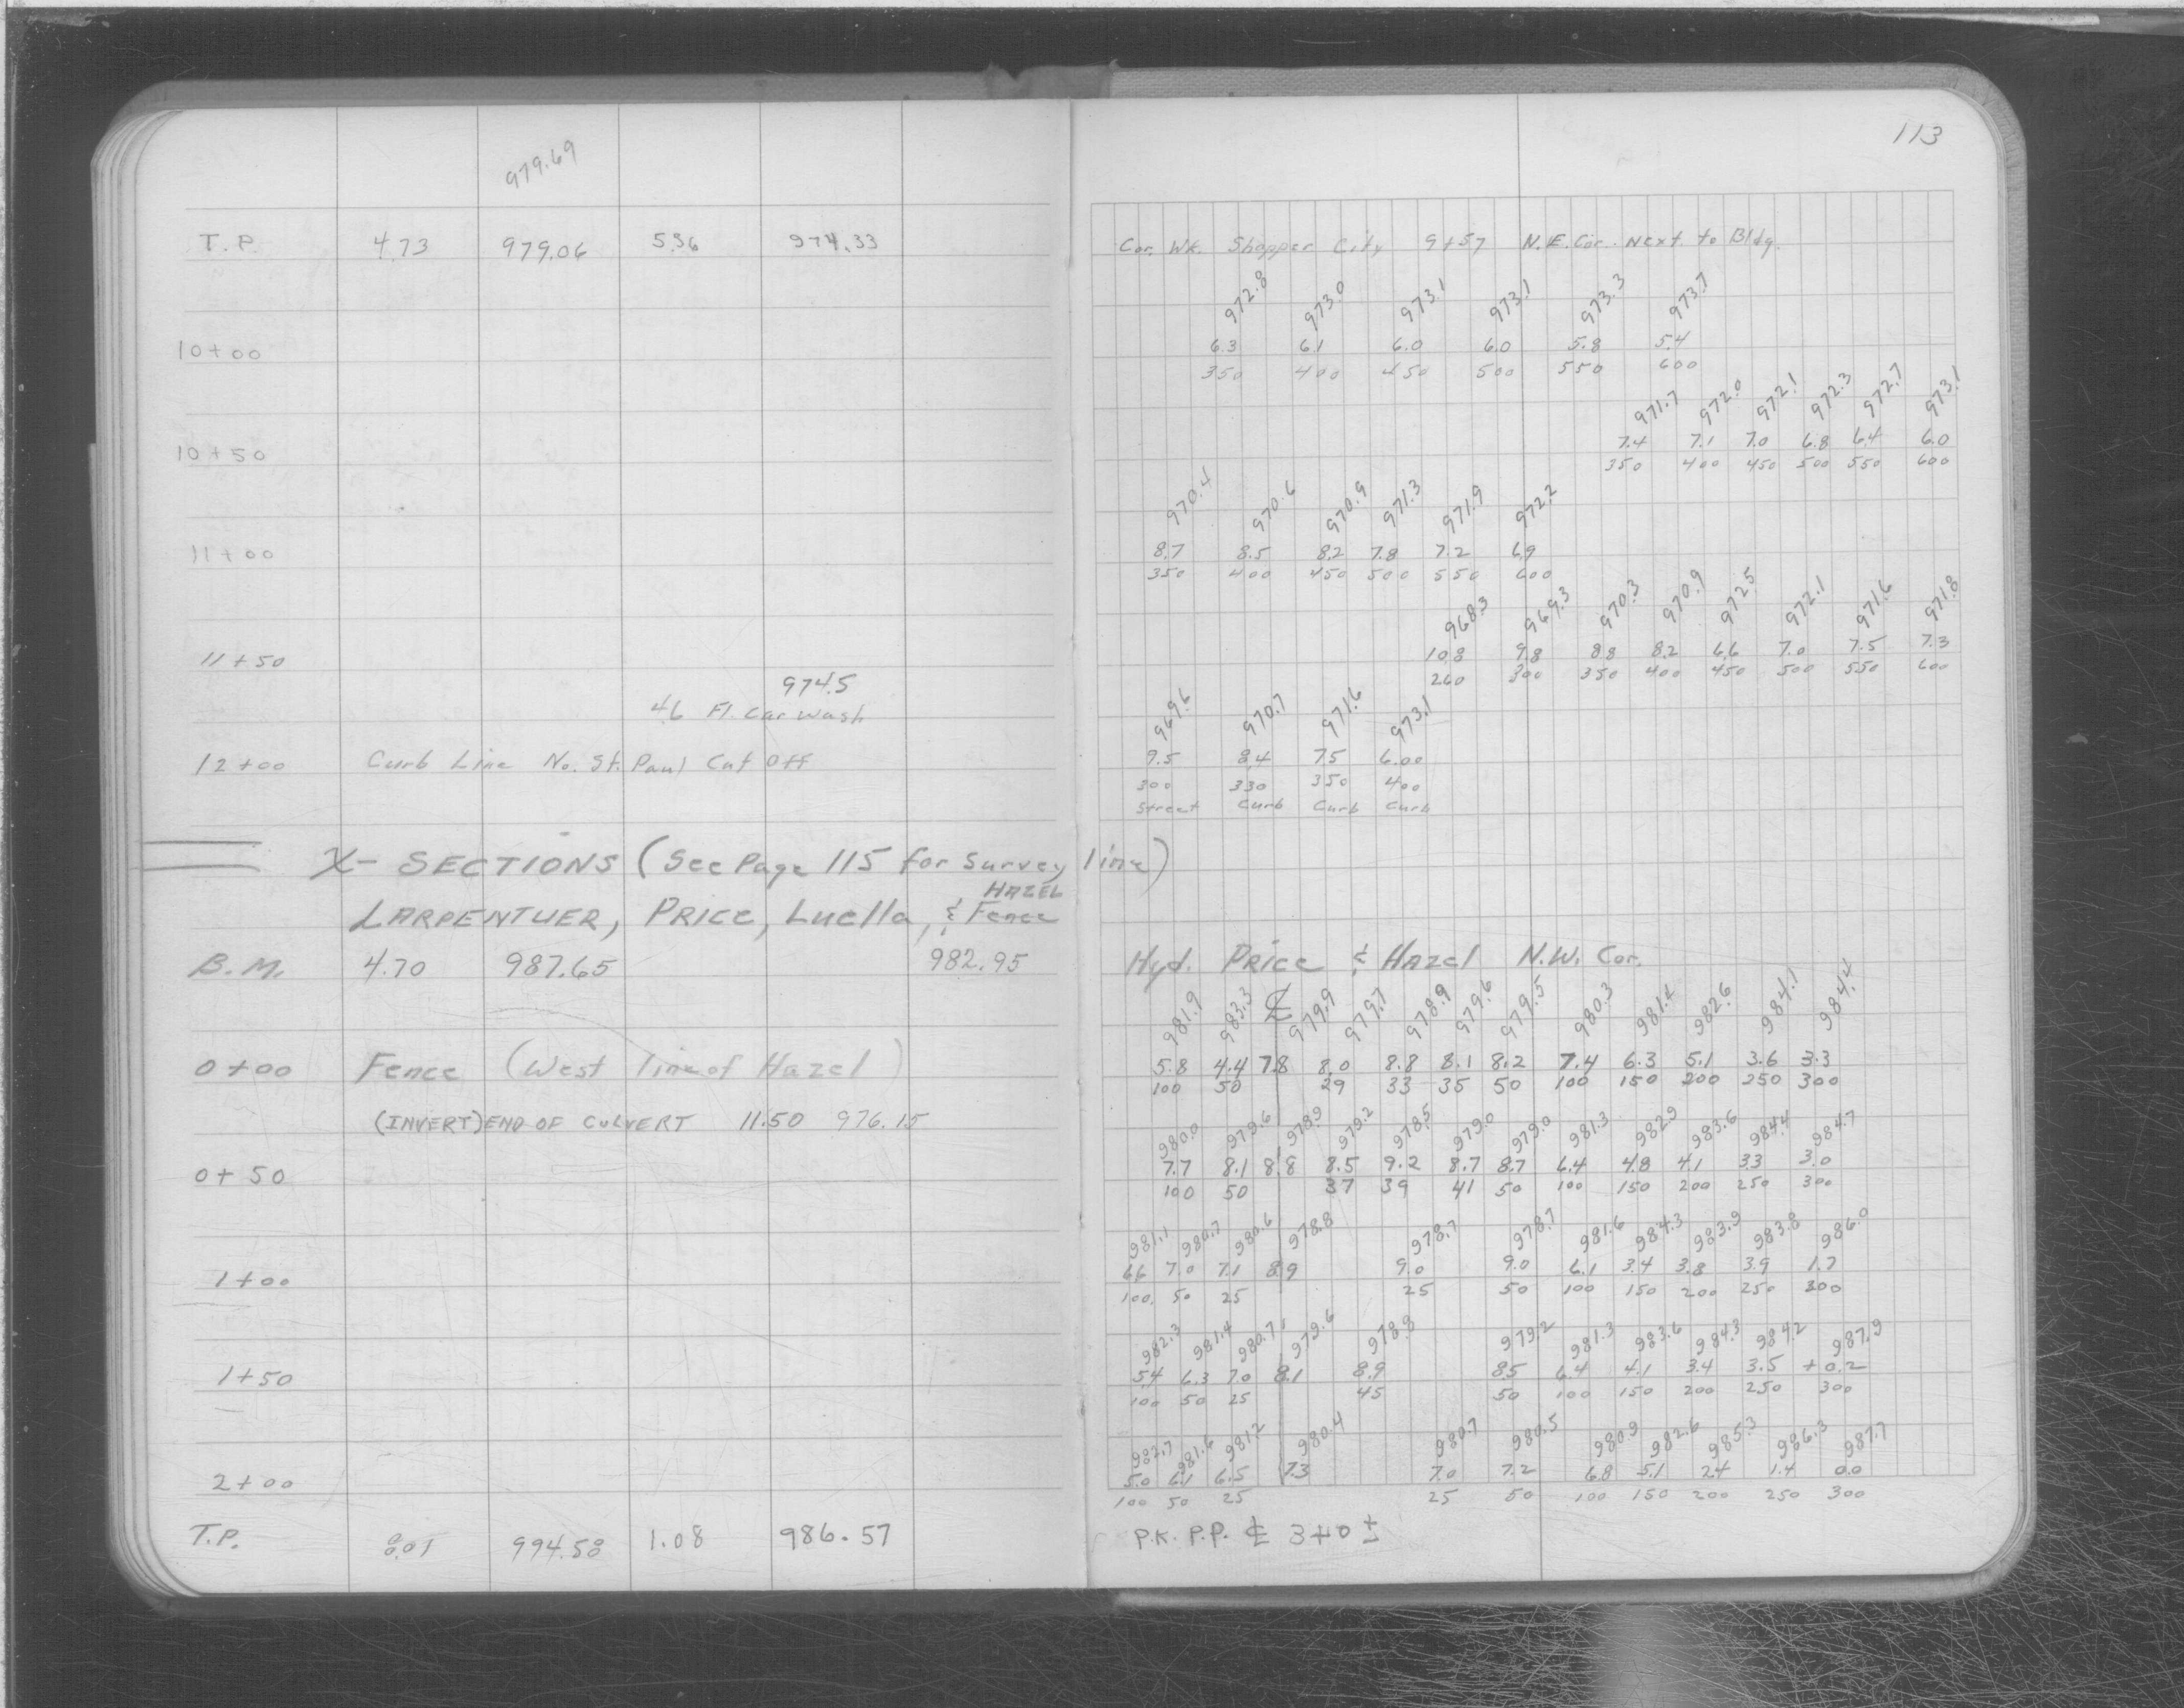 113
979.69
T.P. 4.73 979.06 5.36 974.33 Cor. Wk. Shopper City 9+57 N.E. Cor. Next to Bldg.
972.8 973.0 973.1 973.1 973.3 973.7
10+00 6.3 6.1 6.0 6.0 5.8 5.4
350 400 450 500 550 600
971.7 972.0 972.1 972.3 972.7 973.1
10+50 7.4 7.1 7.0 6.8 6.4 6.0
350 400 450 500 550 600
970.4 970.6 970.9 971.3 971.9 972.2
11+00 8.7 8.5 8.2 7.8 7.2 6.9
350 400 450 500 550 600
968.3 969.3 970.3 970.9 972.5 972.1 971.6 971.8
11+50 10.8 9.8 8.8 8.2 6.6 7.0 7.5 7.3
260 300 350 400 450 500 550 600
974.5
4.6 Fl. Car Wash
969.6 970.7 971.6 973.1
12+00 Curb Line No. St. Paul Cut Off 9.5 8.4 7.5 6.00
300 330 350 400
Street Curb Curb Curb
X-SECTIONS (See Page 115 for Survey line)
HAZEL
LARPENTUER, PRICE, Luella, & Fence
B.M. 4.70 987.65 982.95 Hyd. Price & Hazel N.W. Cor.
981.9 983.3 ℄ 979.9 979.7 978.9 979.6 979.5 980.3 981.4 982.6 984.1 984.4
0+00 Fence (West line of Hazel) 5.8 4.4 7.8 8.0 8.8 8.1 8.2 7.4 6.3 5.1 3.6 3.3
100 50 29 33 35 50 100 150 200 250 300
(INVERT) END OF CULVERT 11.50 976.15
980.0 979.6 978.9 979.2 978.5 979.0 979.0 981.3 982.9 983.6 984.4 984.7
0+50 7.7 8.1 8.8 8.5 9.2 8.7 8.7 6.4 4.8 4.1 3.3 3.0
100 50 37 39 41 50 100 150 200 250 300
981.1 980.7 980.6 978.8 978.7 978.7 981.6 984.3 983.9 983.8 986.0
1+00 6.6 7.0 7.1 8.9 9.0 9.0 6.1 3.4 3.8 3.9 1.7
100 50 25 25 50 100 150 200 250 300
982.3 981.4 980.7 979.6 978.8 979.2 981.3 983.6 984.3 984.2 987.9
1+50 5.4 6.3 7.0 8.1 8.9 8.5 6.4 4.1 3.4 3.5 +0.2
100 50 25 45 50 100 150 200 250 300
982.7 981.6 981.2 980.4 980.7 980.5 980.9 982.6 985.3 986.3 987.7
2+00 5.0 6.1 6.5 7.3 7.0 7.2 6.8 5.1 2.4 1.4 0.0
100 50 25 25 50 100 150 200 250 300
T.P. 8.01 994.58 1.08 986.57 P.K. P.P. ℄ 3+0 ±